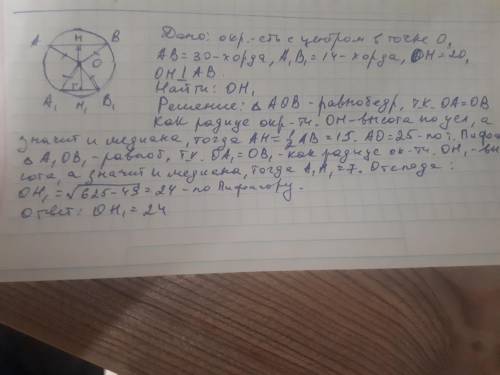 A H B
O
A₁ Г H₁ B₁
Дано: окр-сть с центром в точке O,
AB=30-хорда, A₁B₁=14-хорда, OH=20,
OH⊥AB
Найти: OH₁
Решение: △AOB-равнобедр, т.к. OA=OB
как радиус окр-ти. OH-высота по усл, а
значит и медиана, тогда AH=½AB=15. AO=25-по т. Пифаг
△A₁OB₁-равноб, т.к. OA₁=OB₁-как радиус ок-ти. OH₁-вы
сота, а значит и медиана, тогда A₁H₁=7. Отсюда:
OH₁=√625-49=24-по Пифагору.
Ответ: OH₁=24